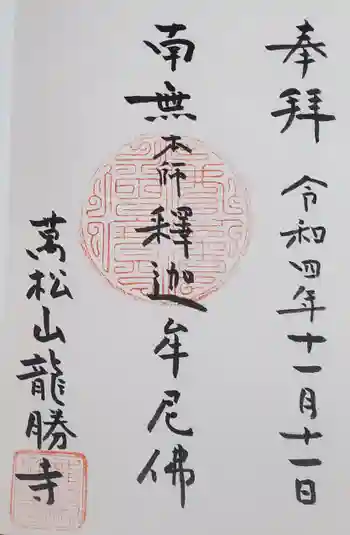 奉拜 令和四年十一月十一日
南無本師釋迦牟尼佛
萬松山龍勝寺